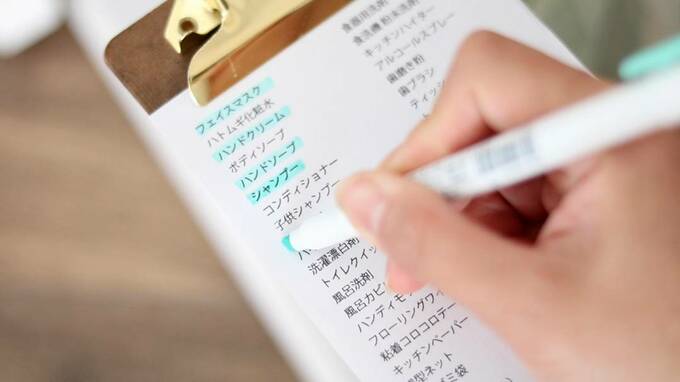 フェイスマスク
ハトムギ化粧水
ハンドクリーム
ボディソープ
ハンドソープ
シャンプー
コンディショナー
子供シャンプー
洗濯漂白剤
トイレクイッ
風呂洗剤
風呂カビ
ハンディモ
フローリングワイ
粘着コロコロテー
キッチンペーパー
型ネット
ミ袋
食器用洗剤
食洗機粉末洗剤
キッチンハイター
アルコールスプレー
歯磨き粉
歯ブラシ
ティッシ